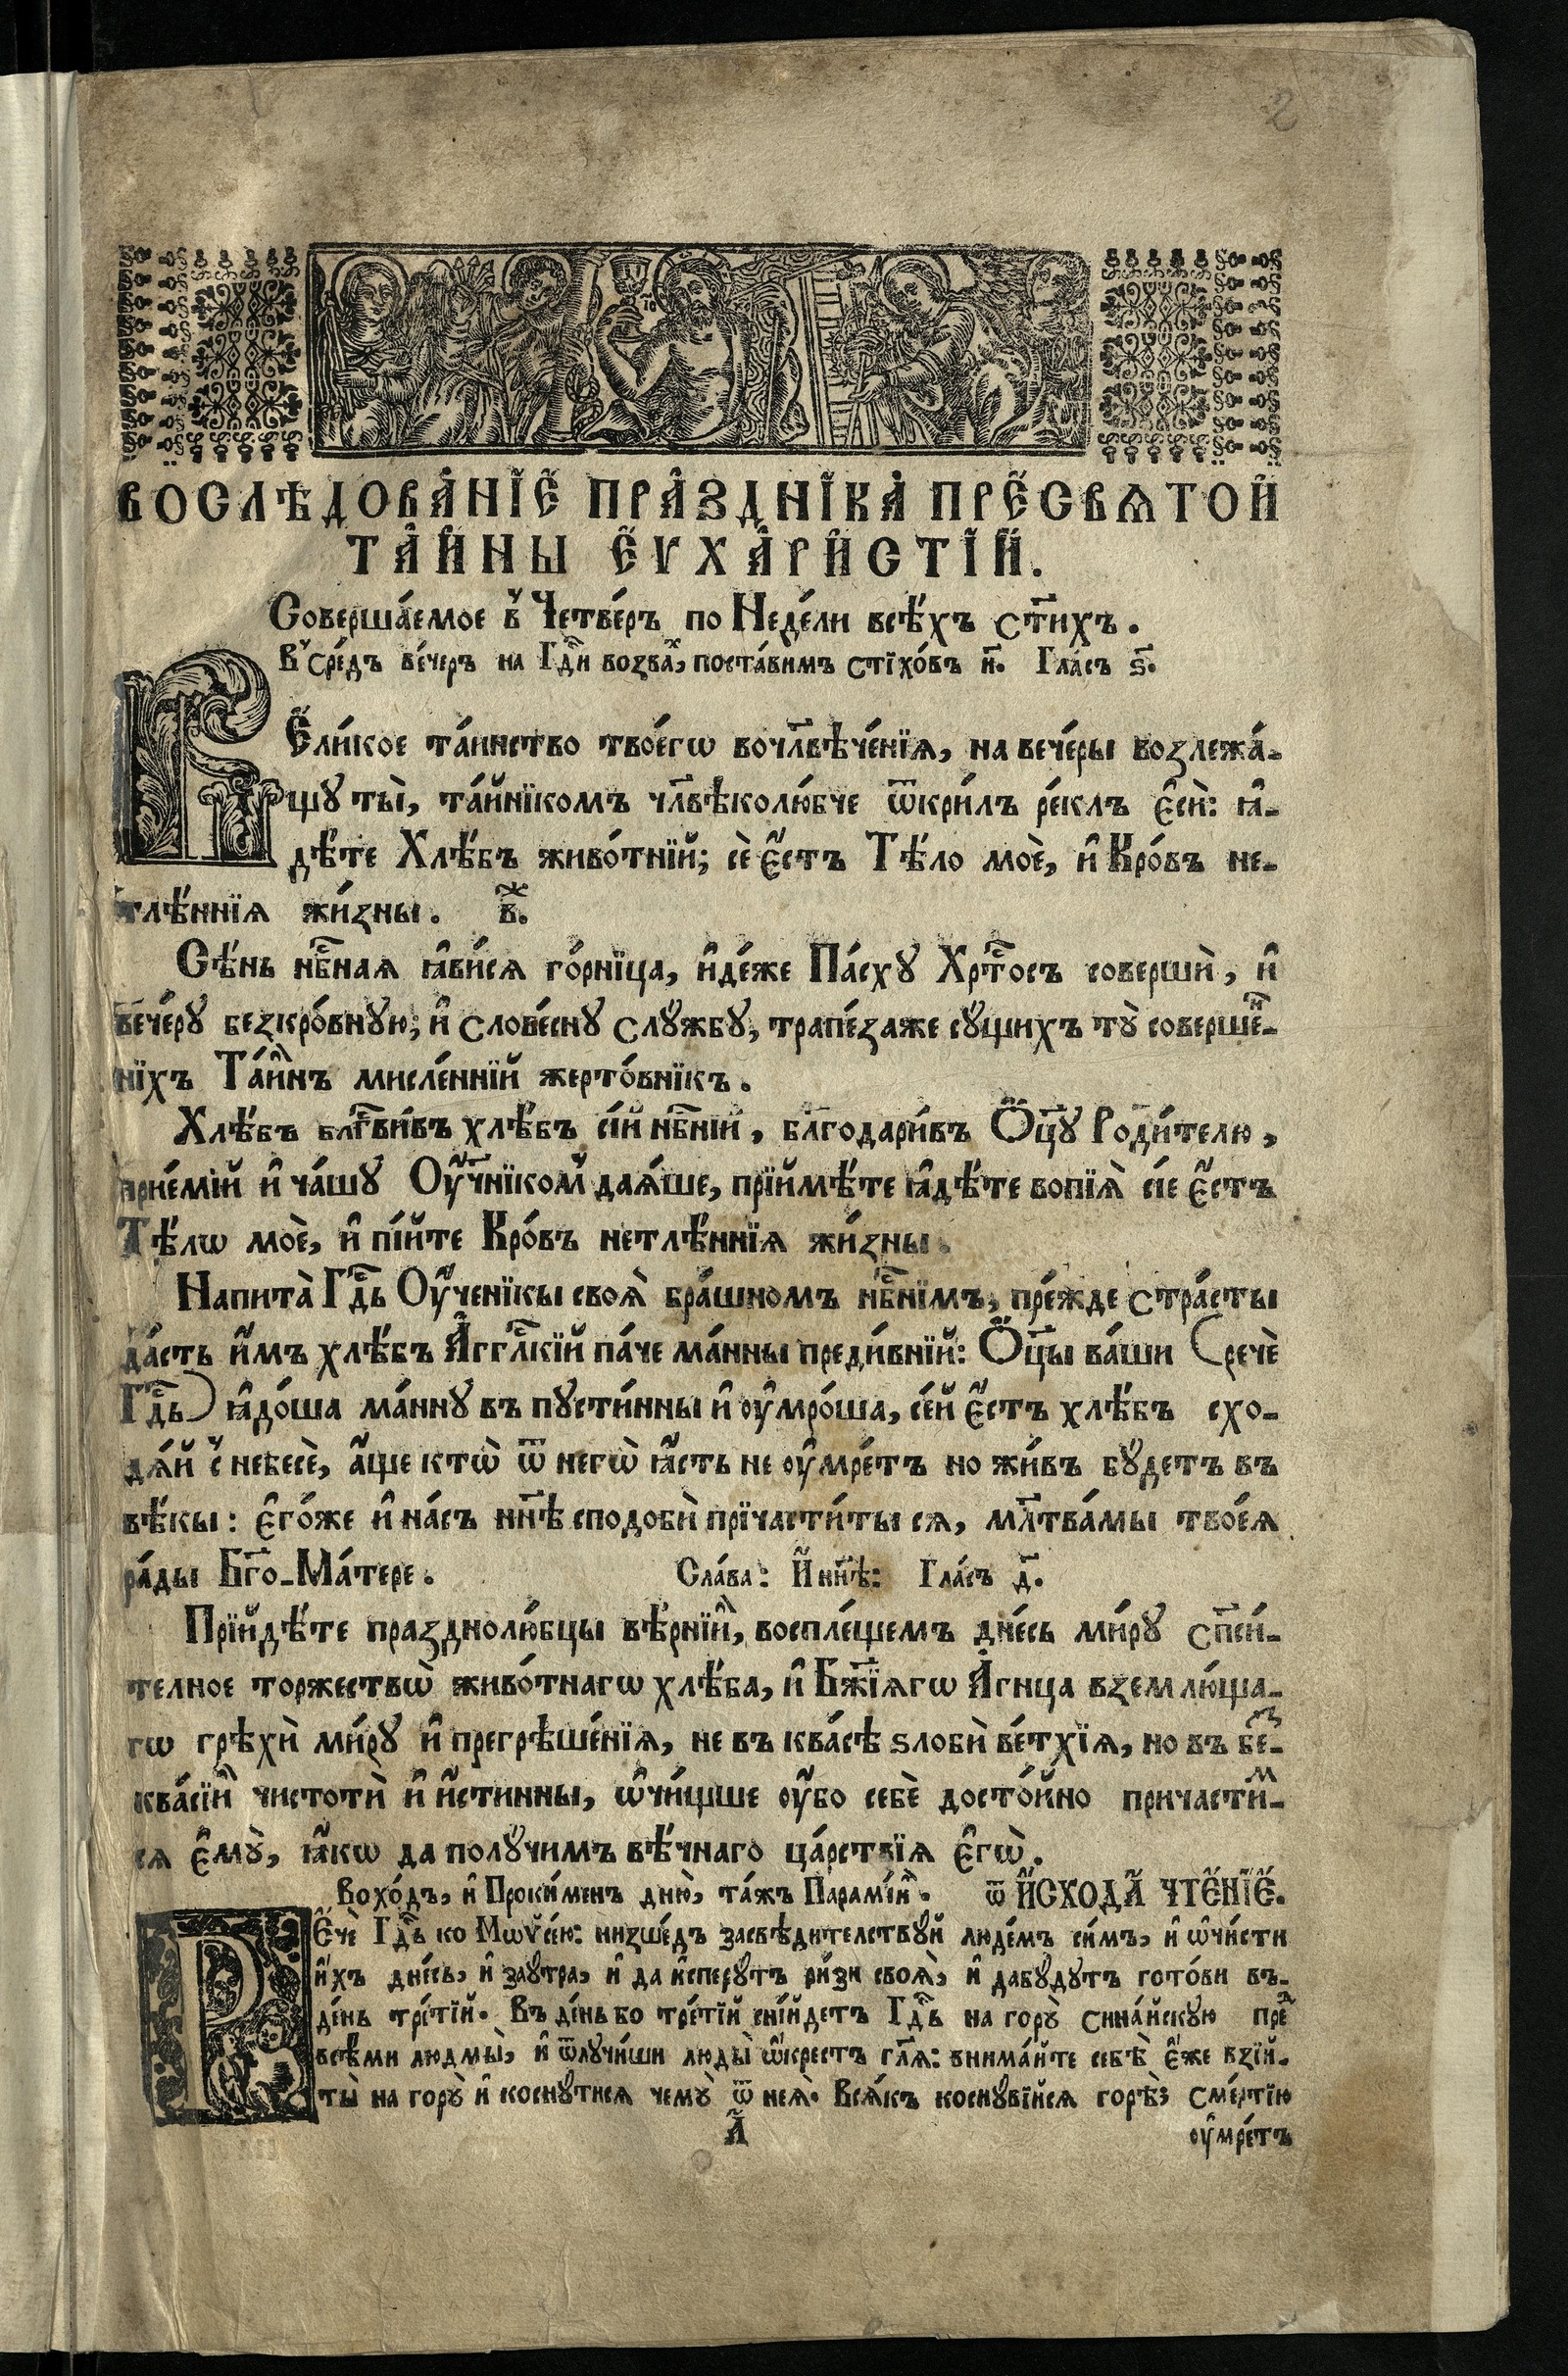 ВОСЛѢДОВА́НЇЕ ПРА́ЗДНЇКА ПРЕСВѦТОЙ
ТА́ЙНЫ ЕѴХАРЇСТЇЙ.
Соверша́емое в̾ Четве́ръ по Неде́ли всѣ́хъ ст҃ихъ.
В̾ сре́дъ ве́черъ на Гдⷭ҇и возваⷯ, поста́вимъ стїхо́въ и҃. Гла́съ ѕ҃.
ВЕли́кое та́инство твоегѡ̀ вочл҃вѣче́нїѧ, на вече́ры возлежа́-
щу ты̀, та́йнїкомъ чл҃вѣколю́бче ѿкри́лъ ре́клъ є҆сѝ: ꙗ҆-
дѣ́те Хлѣ́бъ живо́тнїй; сѐ є҆́стъ Тѣ́ло моѐ, и҆ Кро́въ не-
тлѣ́ннїѧ жи́зны. в҃.ж
Сѣ́нь нбⷭ҇наѧ ꙗ҆ви́сѧ го́рнїца, и҆де́же Па́сху Хрⷭ҇тосъ совершѝ, и҆
вече́ру безкро́вную; и҆ слове́сну слу́жбу, трапе́заже су́щихъ тꙋ̀ совершеⷩ҇-
нїхъ Та́йнъ мисле́ннїй жерто́внїкъ.
Хлѣ́бъ блгⷭ҇ви́въ хлѣ́бъ сі́й нбⷭ҇нїй, бл҃годари́въ Ѻ҆ц҃у Роди́телю,
прие́мїй и҆ ча́шу Оу҆ч҃нїком̾ даѧ́ше, прїймѣ́те ꙗ҆дѣ́те вопїѧ̀ сїе є҆́стъ
Тѣ́лѡ моѐ, и҆ пі́йте Кро́въ нетлѣ́ннїѧ жи́зны.
Напита̀ Гдⷭ҇ь Оу҆ченїкы своѧ̀ бра́шномъ нбⷭ҇нїмъ, пре́жде стра́сты
да́сть и҆̀мъ хлѣ́бъ А҆́ггⷭ҇лкїй па́че ма́нны преди́внїй: Ѻ҆ц҃ы ва́ши (речѐ
Гдⷭ҇ь) ꙗ҆до́ша ма́нну въ пусти́нны и҆ оу҆мро́ша, се́й є҆́стъ хлѣ́бъ схо-
дѧ́й с̾ небесѐ, а҆́ще ктѡ̀ ѿ негѡ̀ ꙗ҆́сть не оу҆мре́тъ но жи́въ бу́детъ въ
вѣ́кы: є҆го́же и҆ на́съ нн҃ѣ сподобѝ прїчасти́ты сѧ, мл҃тва́мы твоеѧ̀
ра́ды Бг҃о-Ма́тере. Сла́ва: И҆ нн҃ѣ: Гла́съ д҃.
Прїйдѣ́те празднолю́бцы вѣ́рнїи, воспле́щемъ дне́сь ми́ру сп҃си́-
телное торжествѡ̀ живо́тнагѡ хлѣ́ба, и҆ Бж҃їѧгѡ А҆́гнца вземлю́ща-
гѡ грѣхѝ ми́ру и҆ прегрѣше́нїѧ, не въ ква́сѣ ѕлобѝ ве́тхїѧ, но въ беⷥ-
ква́сїй чистотѝ и҆ и҆́стинны, ѡ҆чи́щше оу҆́бо себѐ досто́йно причастиⷨ-
сѧ є҆мꙋ̀, ꙗ҆́кѡ да полу́чимъ вѣ́чнаго ца́рствїѧ є҆гѡ̀.
Вохо́дъ, и҆ Проки́менъ дню̀, та́жъ Парамі́й. ѿ И҆СХО́ДА ЧТЕ́НЇЕ.
РЕчѐ Гдⷭ҇ь ко Мѡѷсе́ю: низше́дъ засвѣди́телствуй люде́мъ си́мъ, и҆ ѡ҆чи́сти
и҆́хъ дне́сь, и҆ за́утра, и҆ да и҆сперу́тъ ри́зи своѧ̀, и҆ дабу́дутъ гото́ви въ-
де́нь тре́тїй. Въ де́нь бо тре́тїй сни́йдетъ Гдⷭ҇ь на горꙋ̀ Сина́йскую преⷣ
всѣ́ми людмы̀, и҆ ѿлучи́ши люды̀ ѡ҆́крестъ гл҃ѧ: внима́йте себѣ̀ є҆́же взїй-
ты̀ на горꙋ̀ и҆ косну́тисѧ чемꙋ̀ ѿ неѧ̀. Всѧ́къ косну́вїйсѧ горѣ̀, сме́ртїю
А҃
оу҆мре́тъ